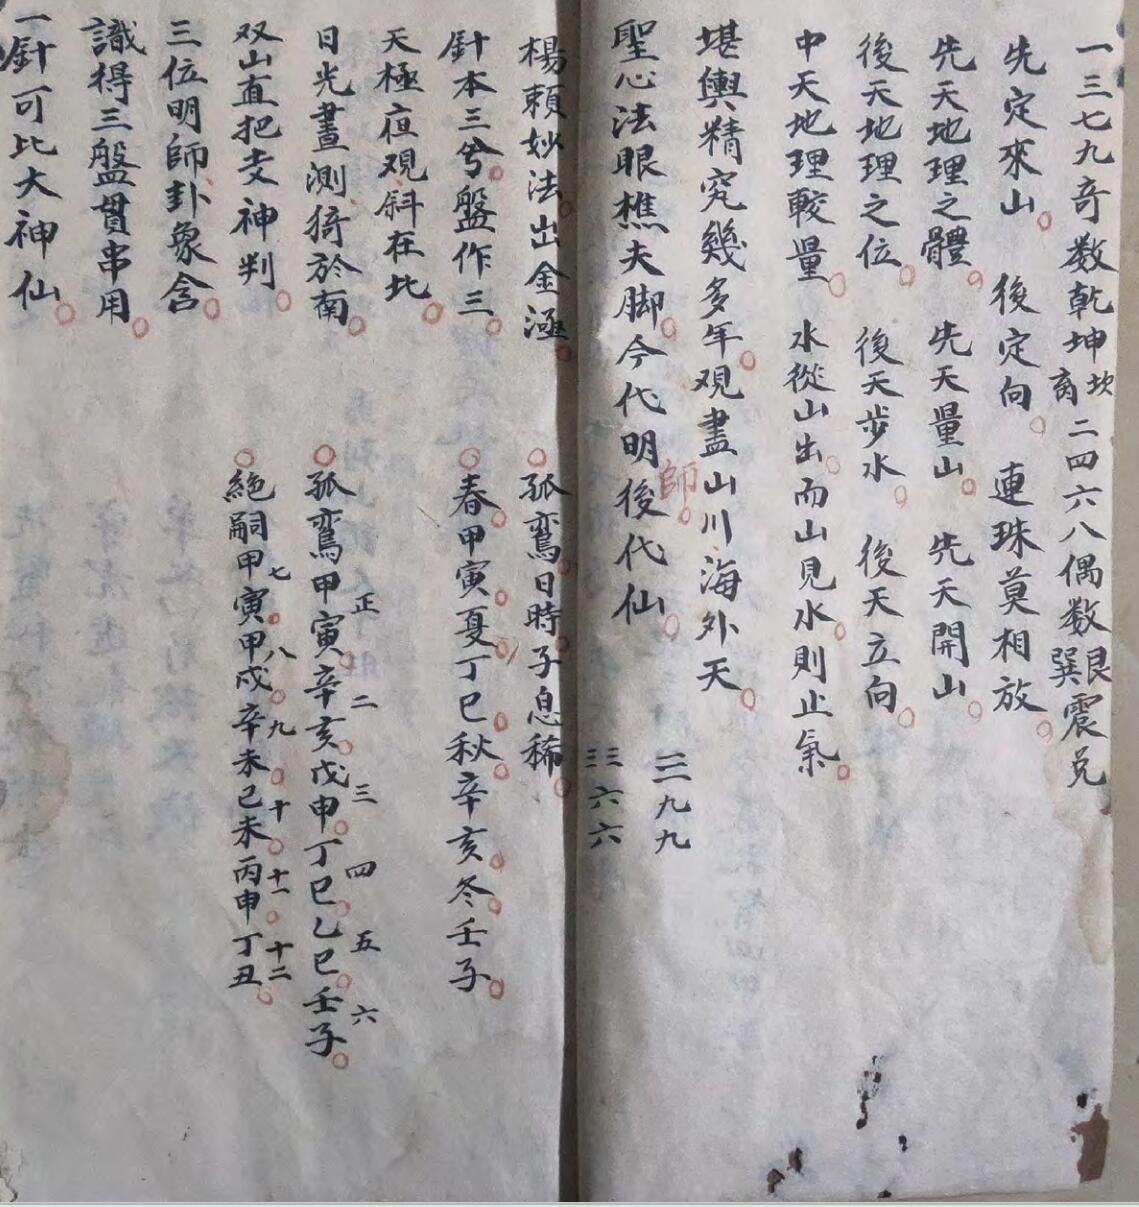 一三七九奇数乾坤坎离二四六八偶数艮巽震兑
先定來山 後定向 連珠莫相放
先天地理之體 先天量山 先天開山
後天地理之位 後天步水 後天立向
中天地理較量 水從山出而山見水則止氣
堪輿精究幾多年观盡山川海外天
聖心法眼樵夫脚今代明師後代仙
三三九九
三三六六
楊頼妙法出金
孤鸞日時子息稀
針本三兮盤作三
春甲寅夏丁巳秋辛亥冬壬子
天極疸观斜在北
日光晝測猗於南
孤鸾甲寅辛亥戊申丁巳乙巳壬子
正二三四五六
双山直把支神判
絕嗣甲寅甲戌辛未己未丙申丁丑
七八九十十一十二
三位明師卦象含
識得三盤貫串用
一針可比大神仙